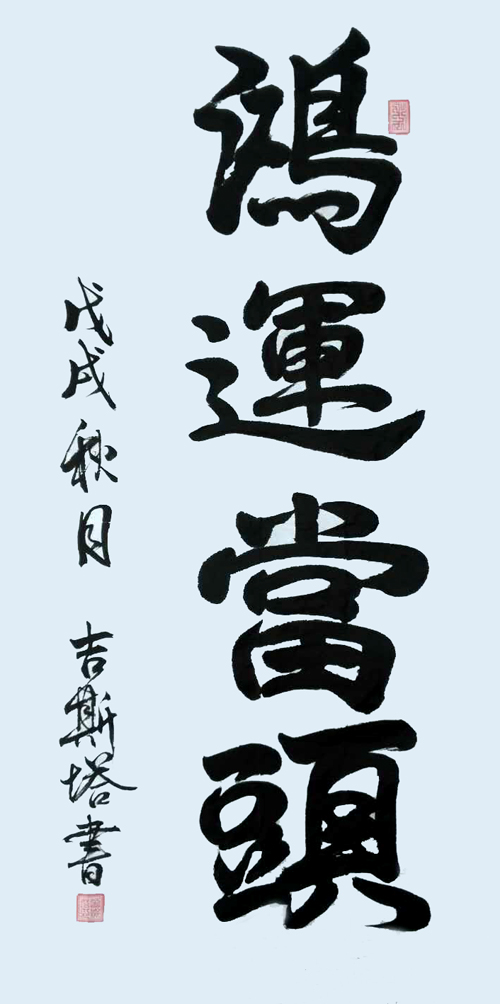 鴻運當頭
戊戌秋月 吉斯塔書